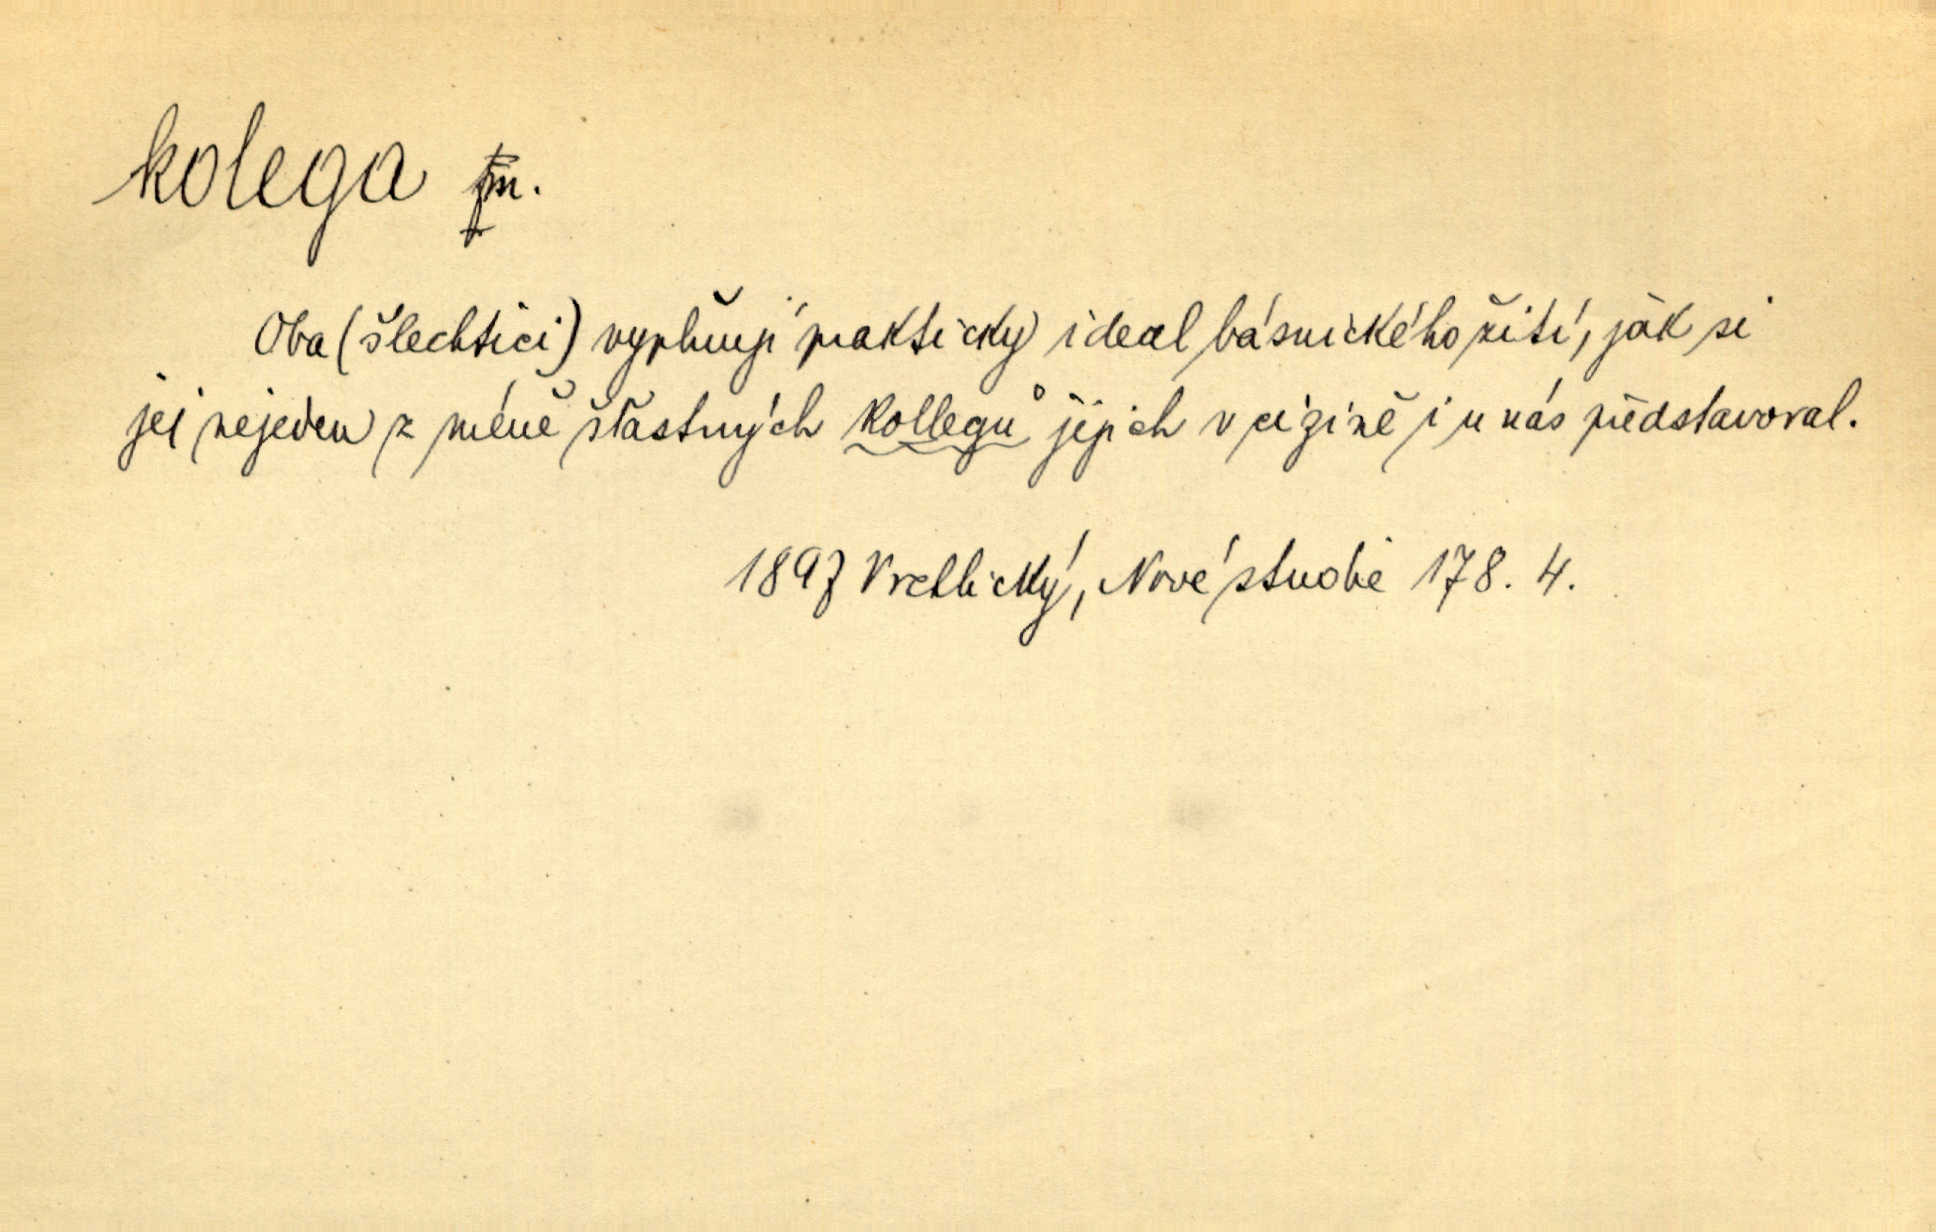 kolega m.
Oba (šlechtici) vyplňují praktický ideal básnického žití, jak si
jej nejeden z méně šťastných kollegů jejich v cizině i u nás představoval.
1897 Vrchlický, Nové studie 178. 4.